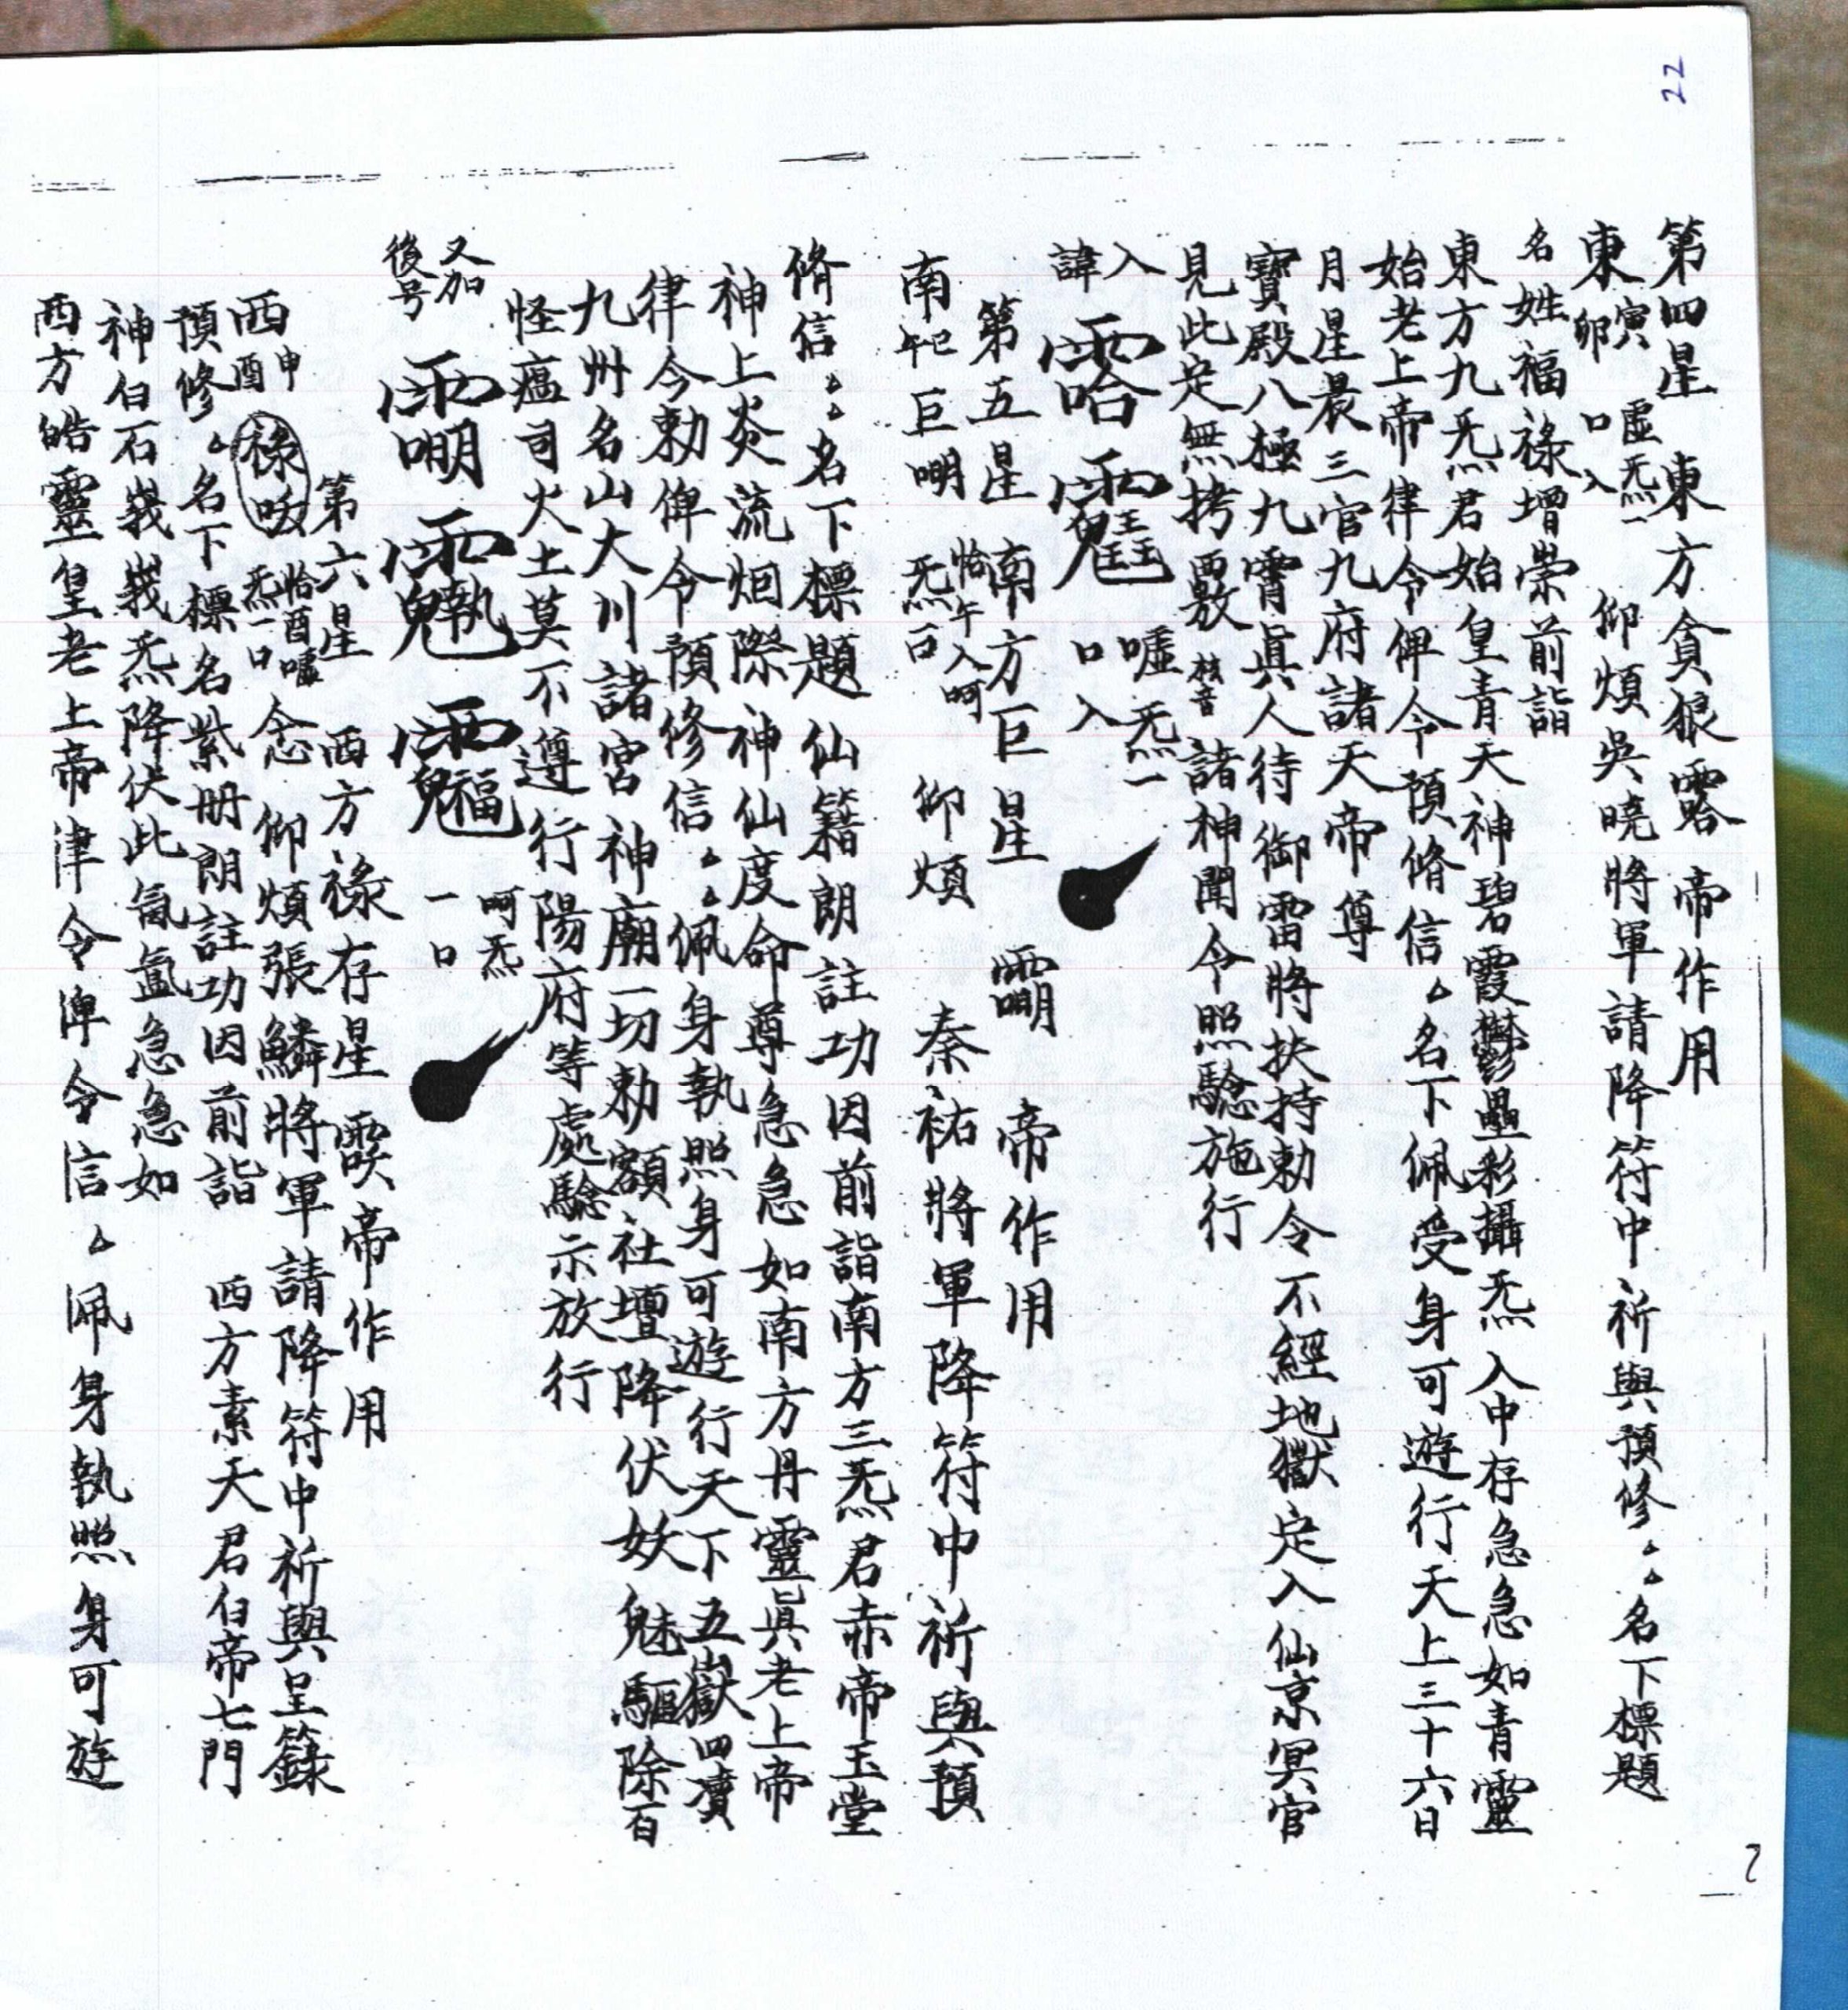 22
第四星 東方貪狼 帝作用
東 寅卯 噓炁一口入 仰煩吳曉將軍請降符中祈與預修㕕㕕名下標題
名姓福祿增榮前詣
東方九炁君始皇青天神碧霞鬱壘彩攝炁入中存急急如青靈
始老上帝律令俾令預脩信㕕名下佩受身可遊行天上三十六日
月星晨三官九府諸天帝尊
寶殿八極九霄眞人待御雷將扶持勅令不經地獄定入仙京冥官
見此定無拷 諸神聞令照驗施行
入諱 噓炁一口入
第五星 南方巨星 帝作用
南 巳午 巨𠵇 炁 恰午入呵 仰煩 秦祐將軍降符中祈與預
脩信㕕㕕名下標題仙籍朗註功因前詣南方三炁君赤帝玉堂
神上炎流烟際神仙度命尊急急如南方丹靈眞老上帝
律令勅俾令預修信㕕㕕佩身執照身可遊行天下五嶽四瀆
九州名山大川諸宮神廟一切勅額社壇降伏妖魅驅除百
怪瘟司火土莫不遵行陽府等處驗示放行
又加後号 呵炁一口
第六星 西方祿存星 帝作用
西 申酉 祿 恰酉噓炁一口 念 仰煩張鱗將軍請降符中祈與呈籙
預修㕕名下標名紫册朗註功因前詣 西方素天君白帝七門
神白石峩峩炁降伏此氤氳急急如
西方皓靈皇老上帝律令俾令信㕕佩身執照身可遊